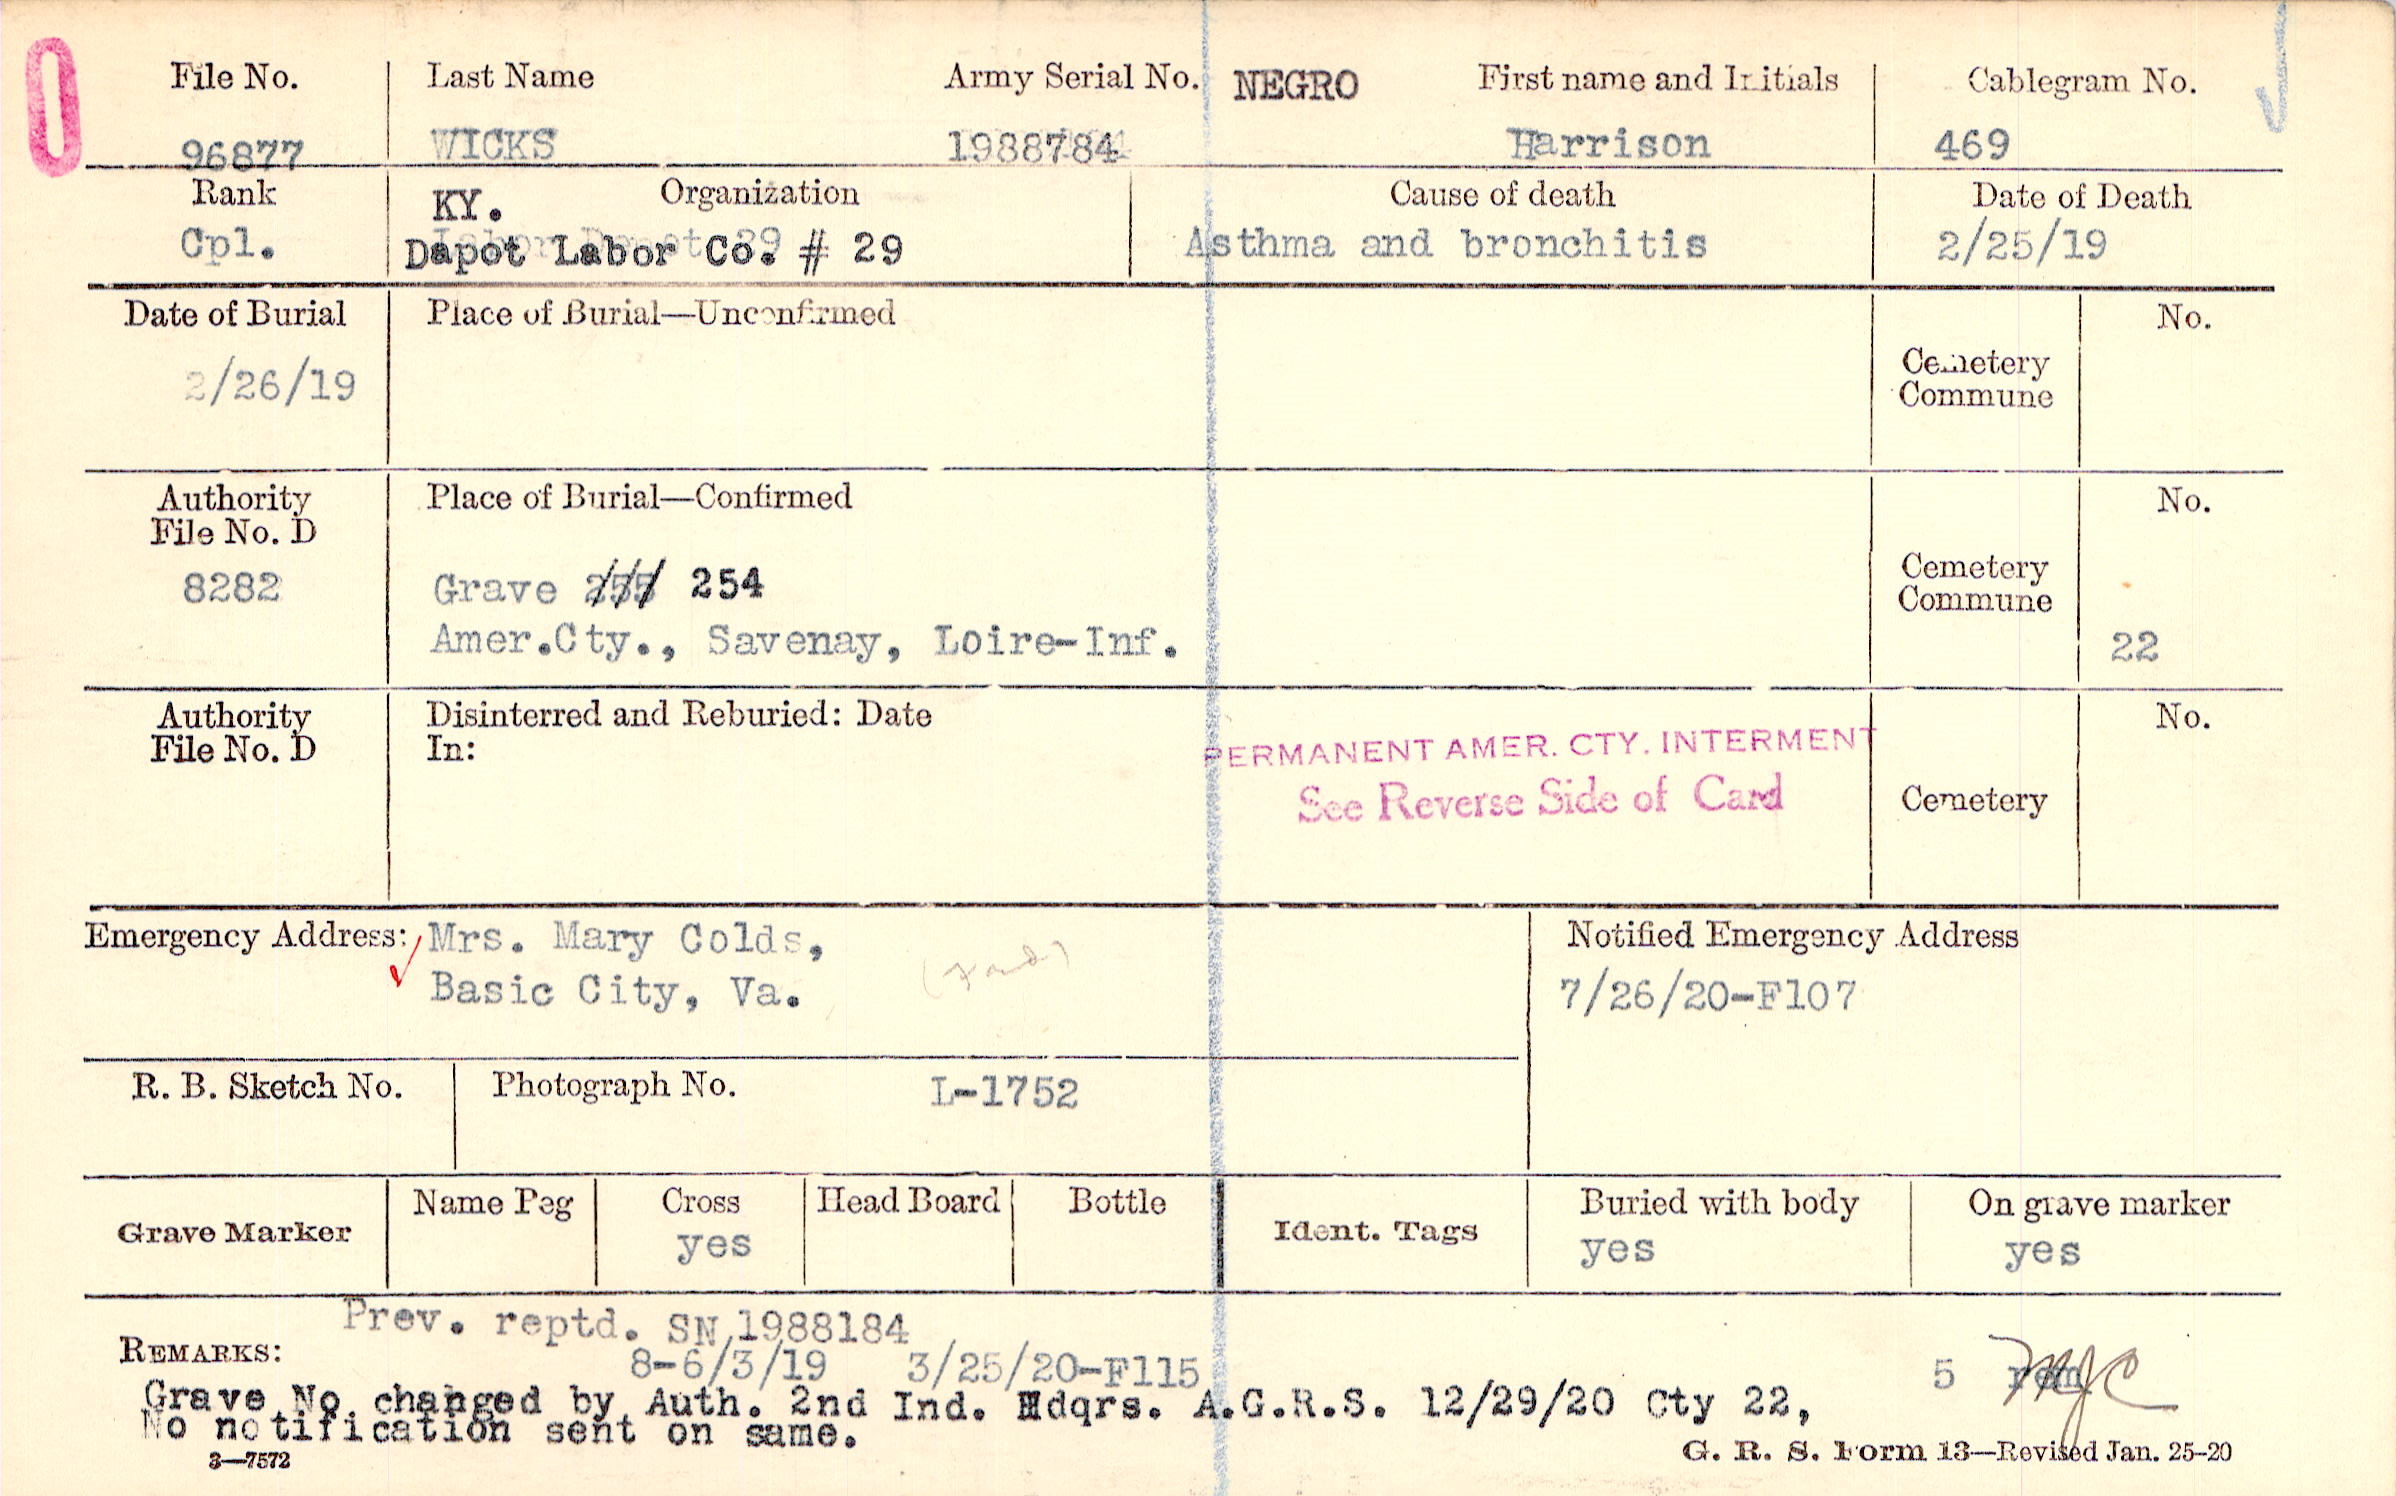 File No. Last Name Army Serial No. NEGRO First name and Initials Cablegram No.
96877 WICKS 1988784 Harrison 469
Rank KY. Organization Cause of death Date of Death
Cpl. Depot Labor Co. # 29 Asthma and bronchitis 2/25/19
Date of Burial Place of Burial—Unconfirmed No.
2/26/19 Cemetery
Commune
Authority Place of Burial—Confirmed No.
File No. D
8282 Grave 255 254 Cemetery
Commune
Amer.Cty., Savenay, Loire-Inf. 22
Authority Disinterred and Reburied: Date No.
File No. D In:
PERMANENT AMER. CTY. INTERMENT
See Reverse Side of Card Cemetery
Emergency Address: Mrs. Mary Colds, Notified Emergency Address
Basic City, Va. 7/26/20-F107
R. B. Sketch No. Photograph No. L-1752
Grave Marker Name Peg Cross Head Board Bottle Ident. Tags Buried with body On grave marker
yes yes yes
Prev. reptd. SN 1988184
REMARKS: 8-6/3/19 3/25/20-F115 5
Grave No. changed by Auth. 2nd Ind. Hdqrs. A.G.R.S. 12/29/20 Cty 22,
No notification sent on same.
3—7572 G. R. S. Form 13—Revised Jan. 25-20